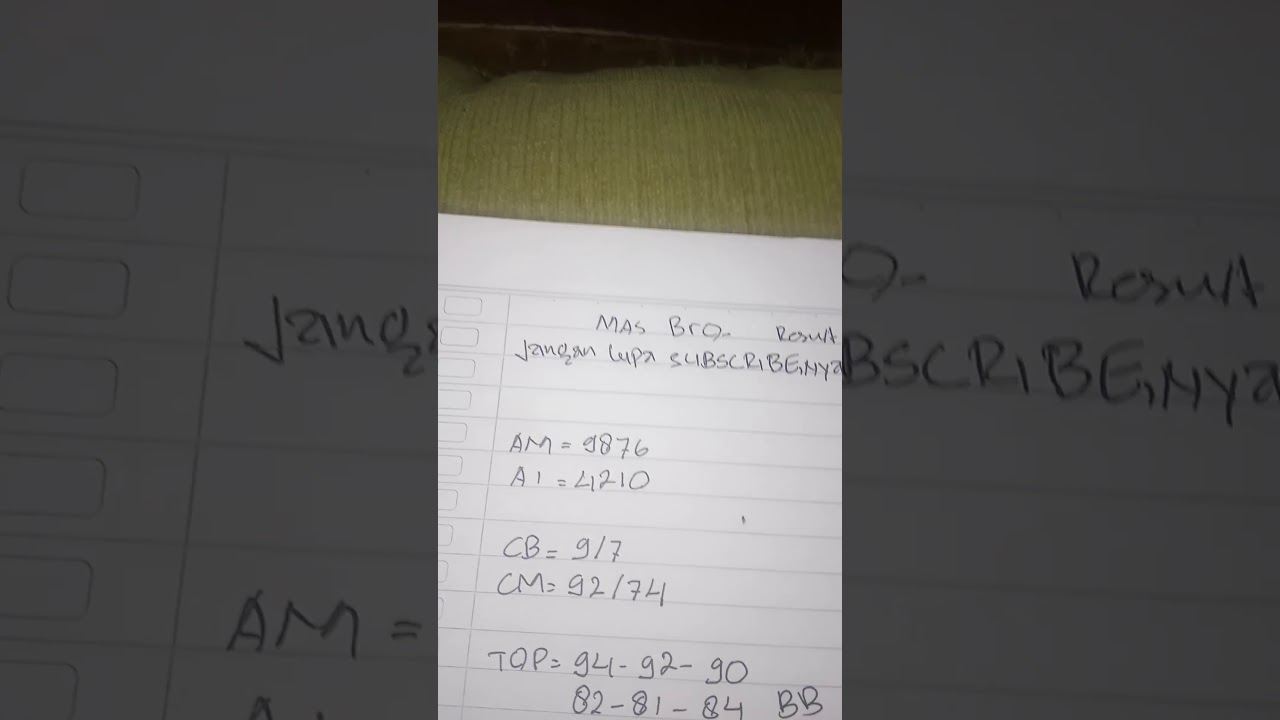 MAS BrO- Result
Jangan lupa SUBSCRIBE,NYa
AM = 9876
AI = 4210
CB = 9/7
CM = 92/74
TOP = 94 - 92 - 90
82 - 81 - 84 BB